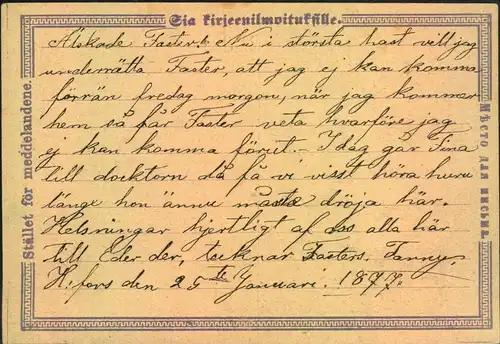 Sia kirjeenilmoituksille.
Älskade Faster! Nu i största hast vill jag
underrätta Faster, att jag ej kan komma
förrän fredag morgon, när jag kommer
hem så får Faster veta hvarföre jag
ej kan komma förut. - I dag går Fina
till docktorn då få vi visst höra huru
länge hon ännu måste dröja här.
Helsningar hjertligt af oss alla här
till Eder der, tecknar Fasters. Fanny.
H:fors den 25te Januari. 1877.
Stället för meddelandene.
Мѣсто для письма.